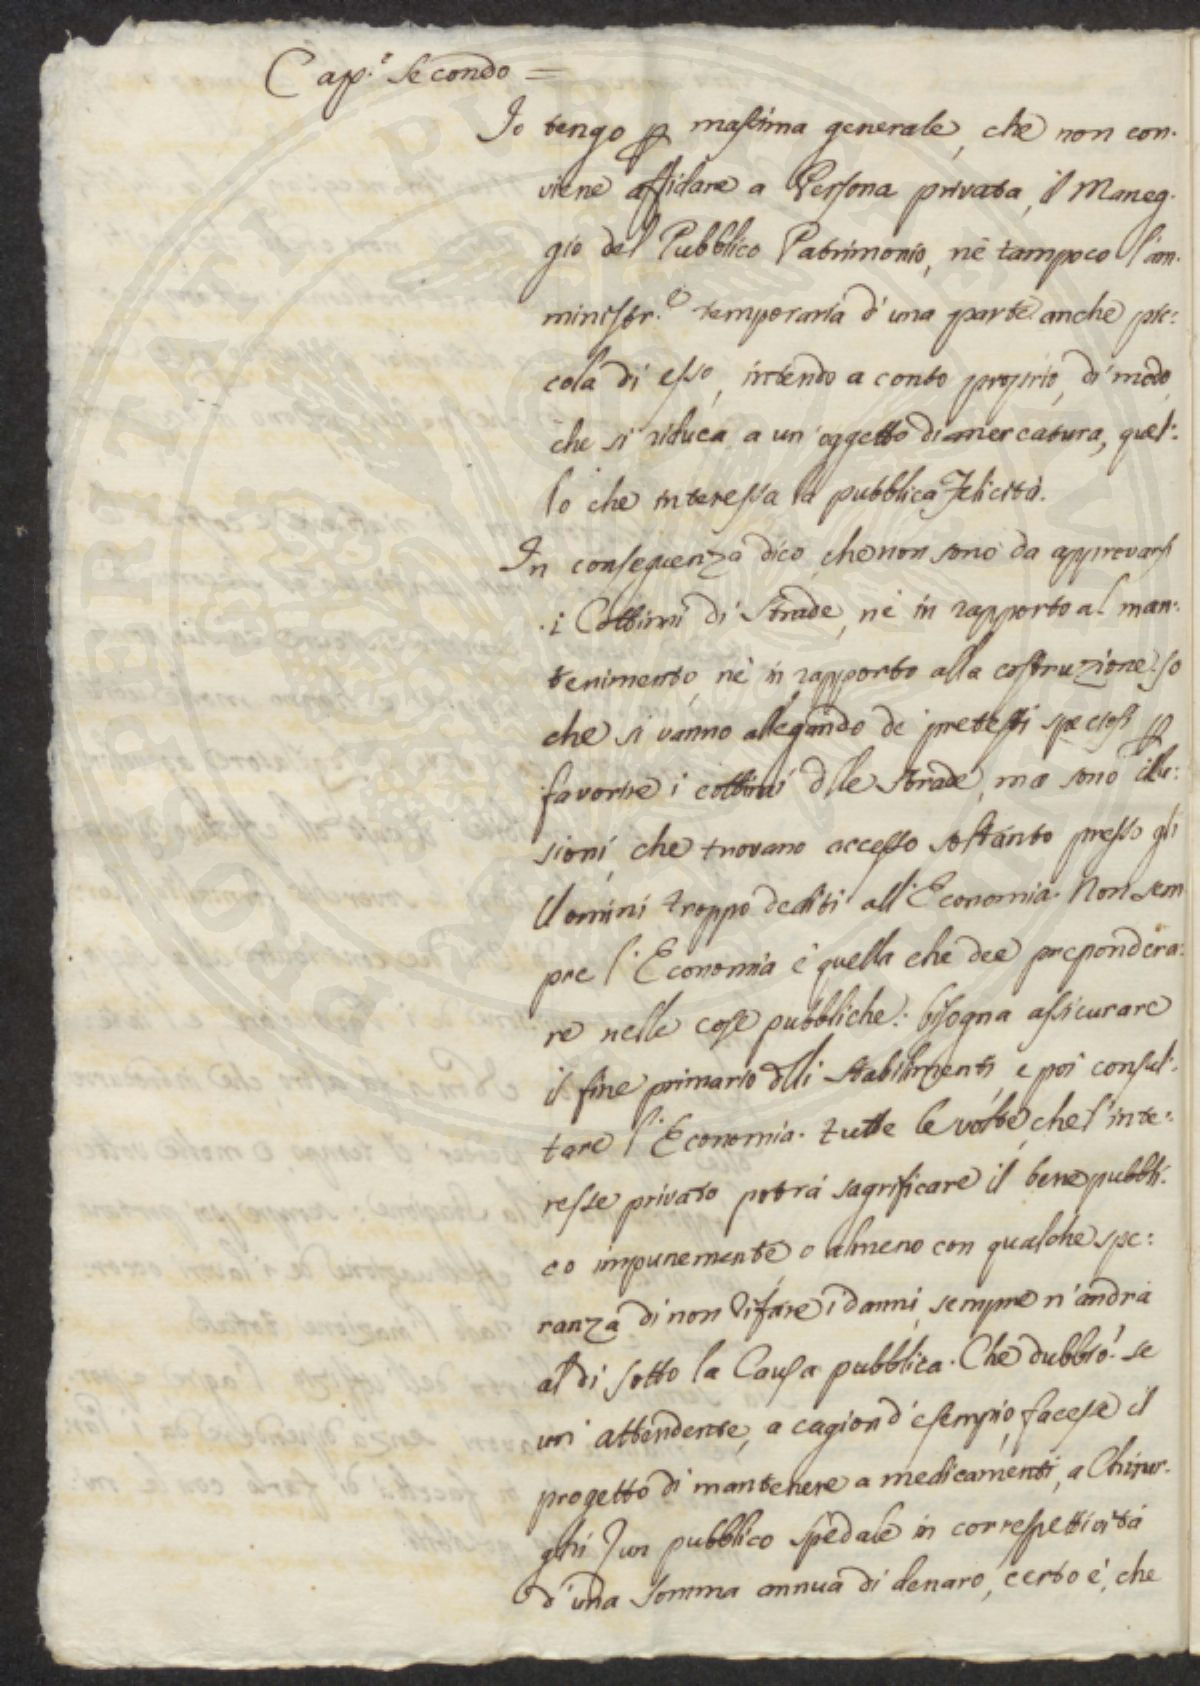 Cap.° secondo =
Io tengo p massima generale, che non con-
viene affidare a Persona privata, il Maneg-
gio del Pubblico Patrimonio, nè tampoco l'am-
ministr.e temporaria d'una parte anche pic:
cola di esso, intendo a conto proprio, di modo,
che si riduca a un oggetto di mercatura, quel:
lo che interessa la pubblica Felicità.
In conseguenza dico, che non sono da approvarsi
i Cottimi di Strade, nè in rapporto al man:
tenimento, nè in rapporto alla costruzione. So
che si vanno allegando de pretesti speciosi p
favorire i cottimi dlle Strade, ma sono illu:
sioni, che trovano accesso soltanto presso gli
Uomini troppo dediti all'Economia. Non sem
pre l'Economia è quella che dee prepondera:
re nelle cose pubbliche: bisogna assicurare
il fine primario dlli stabilimenti, e poi consul:
tare l'Economia. tutte le volte, che l'inte:
resse privato potrà sagrificare il bene pubbli:
co impunemente o almeno con qualche spe:
ranza di non rifare i danni, sempre n'andrà
al di sotto la Causa pubblica. Che dubbio! se
un attendente, a cagion d'esempio, facesse il
progetto di mantenere a medicamenti, a Chirur-
ghi un pubblico spedale in correspettività
d'una somma annua di denaro, certo è, che
PROSPERITATI PUBLICAE